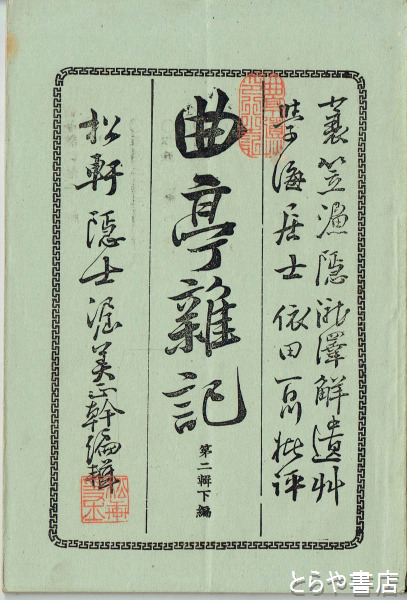 蓑笠漁隠瀧澤解遺艸
學海居士依田百川批評
曲亭雜記
第二輯下編
松軒隠士渥美正幹編輯
とらや書店